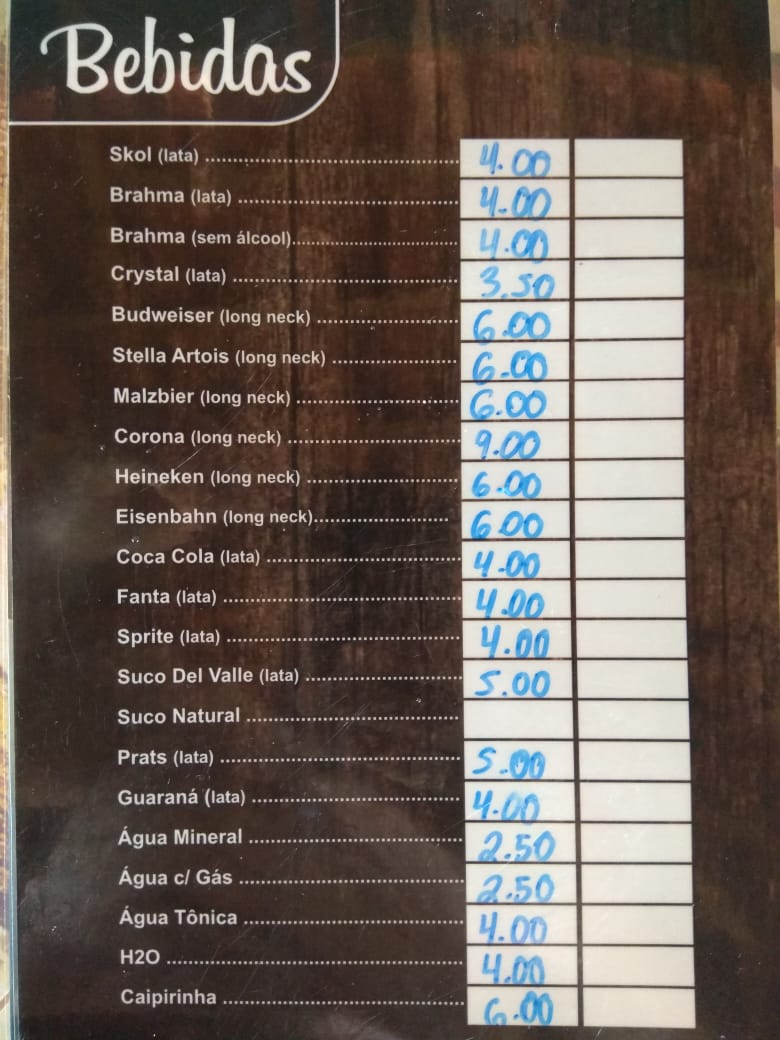 Bebidas
Skol (lata) ............................................... 4.00
Brahma (lata) ......................................... 4.00
Brahma (sem álcool)............................... 4.00
Crystal (lata) .......................................... 3.50
Budweiser (long neck) .......................... 6.00
Stella Artois (long neck) ....................... 6.00
Malzbier (long neck) .............................. 6.00
Corona (long neck) ................................ 9.00
Heineken (long neck) ............................ 6.00
Eisenbahn (long neck)......................... 6.00
Coca Cola (lata) ..................................... 4.00
Fanta (lata) ............................................. 4.00
Sprite (lata) ............................................ 4.00
Suco Del Valle (lata) .............................. 5.00
Suco Natural ........................................
Prats (lata) ............................................. 5.00
Guaraná (lata) ....................................... 4.00
Água Mineral ......................................... 2.50
Água c/ Gás .......................................... 2.50
Água Tônica .......................................... 4.00
H2O ....................................................... 4.00
Caipirinha .............................................. 6.00